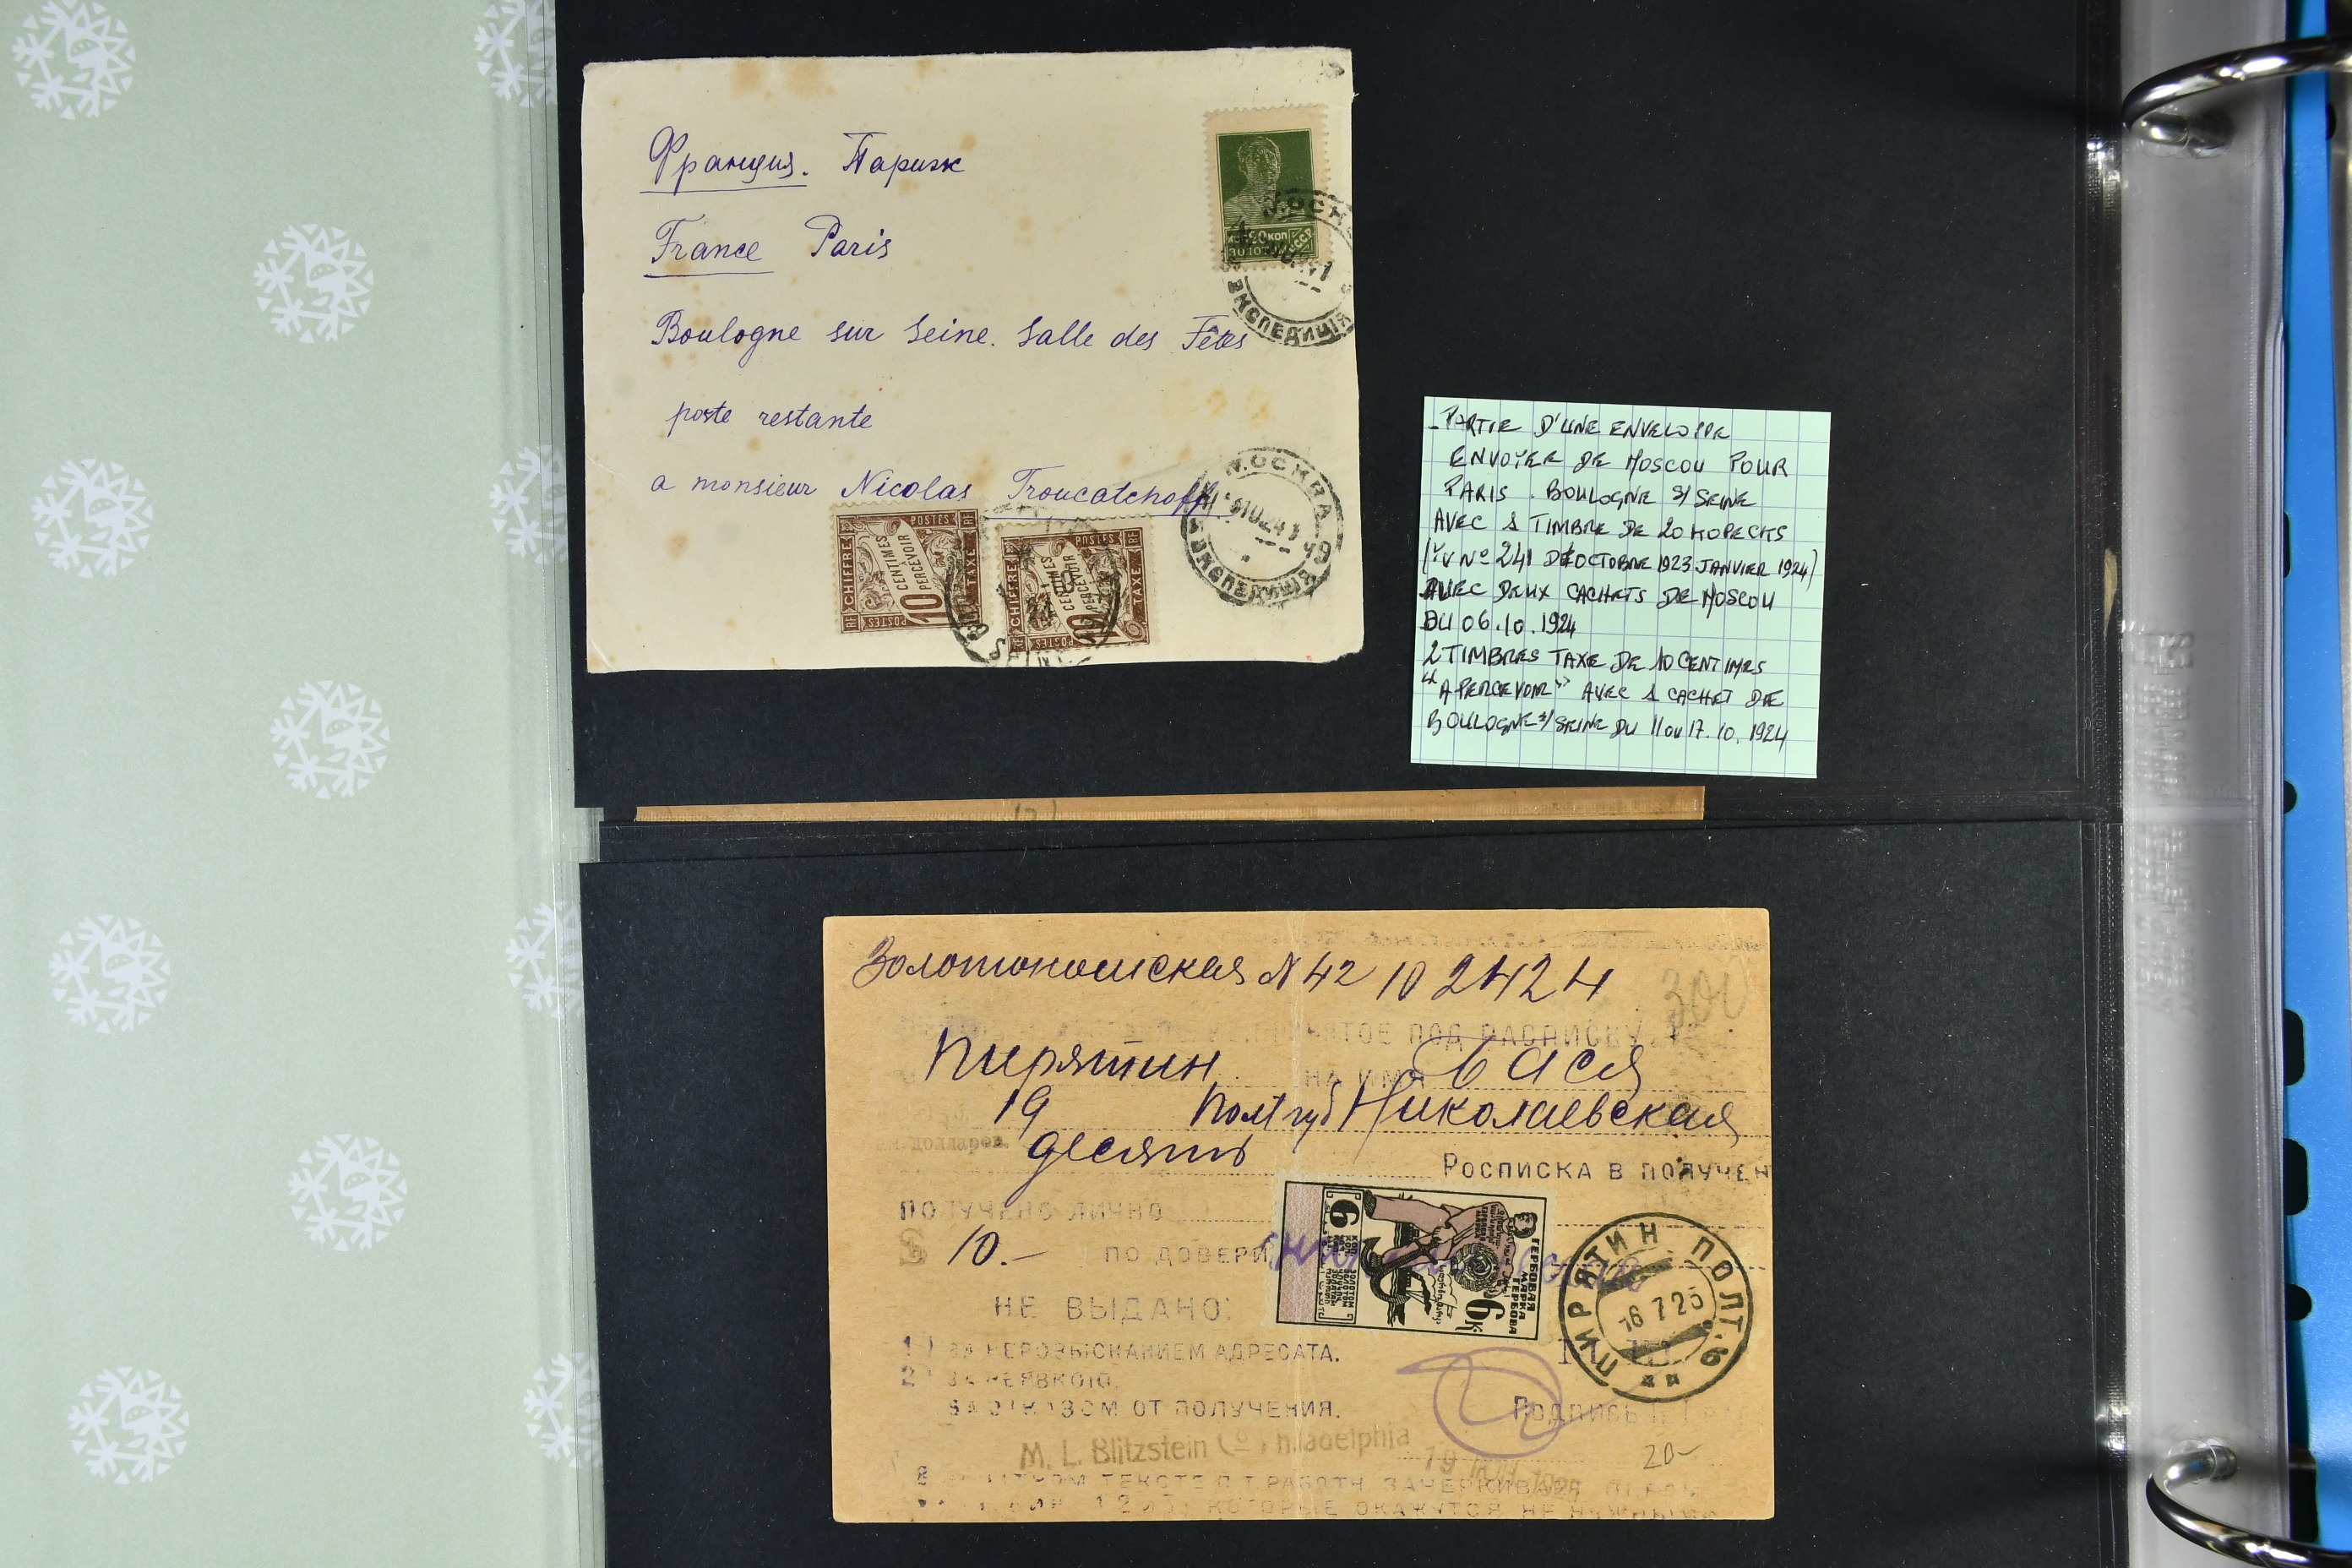 Франция. Париж
France Paris
Boulogne sur Seine. Salle des Fêtes
poste restante
a monsieur Nicolas Troucatchoff.
20 КОП
МОСКВА
ЭКСПЕДИЦИЯ
CHIFFRE TAXE
POSTES RF
10 CENTIMES A PERCEVOIR
CHIFFRE TAXE
POSTES RF
10 CENTIMES A PERCEVOIR
- PARTIE D'UNE ENVELOPPE
ENVOYER DE MOSCOU POUR
PARIS . BOULOGNE S/ SEINE
AVEC 1 TIMBRE DE 20 KOPECKS
(YV Nº 241 DE OCTOBRE 1923 JANVIER 1924)
AVEC DEUX CACHETS DE MOSCOU
DU 06.10.1924
2 TIMBRES TAXE DE 10 CENTIMES
"A PERCEVOIR" AVEC 1 CACHET DE
BOULOGNE S/ SEINE DU 11 OU 17.10.1924
Золотоношская N 42 10 2424
300
ПОД РАСПИСКУ
Пирятин НА ИМЯ Бася
19 Полт губ Николаевская
ам. долларов.
десять
РОСПИСКА В ПОЛУЧЕН
ПОЛУЧЕНО ЛИЧНО
10.- ПО ДОВЕРИ
ГЕРБОВАЯ МАРКА
6 к
6 КОП
ПИРЯТИН ПОЛТ.
16 7 25
НЕ ВЫДАНО:
1) ЗА НЕРОЗЫСКАНИЕМ АДРЕСАТА.
2 ЗА НЕЯВКОЮ.
ЗА ОТКАЗОМ ОТ ПОЛУЧЕНИЯ.
Подпись
M. L. Blitzstein Co Philadelphia
20-
ТЕКСТЕ П Т РАБОТН ЗАЧЕРКИВАЕТ
КОТОРЫЕ ОКАЖУТСЯ НЕ НУЖНЫ